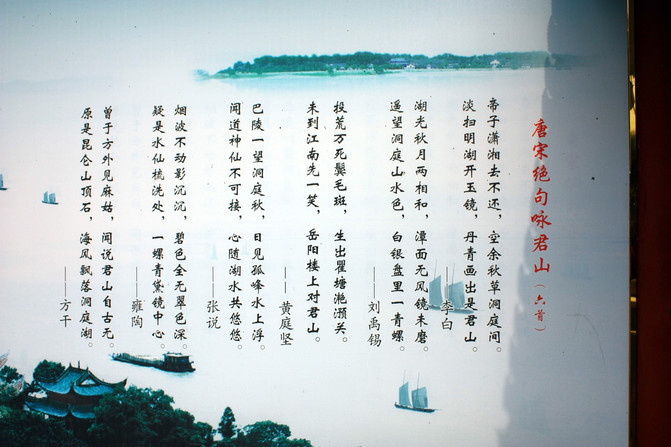 唐宋绝句咏君山（六首）
帝子潇湘去不还，空余秋草洞庭间。
淡扫明湖开玉镜，丹青画出是君山。
——李白
湖光秋月两相和，潭面无风镜未磨。
遥望洞庭山水色，白银盘里一青螺。
——刘禹锡
投荒万死鬓毛斑，生出瞿塘滟滪关。
未到江南先一笑，岳阳楼上对君山。
——黄庭坚
巴陵一望洞庭秋，日见孤峰水上浮。
闻道神仙不可接，心随湖水共悠悠。
——张说
烟波不动影沉沉，碧色全无翠色深。
疑是水仙梳洗处，一螺青黛镜中心。
——雍陶
曾于方外见麻姑，闻说君山自古无。
原是昆仑山顶石，海风飘落洞庭湖。
——方干